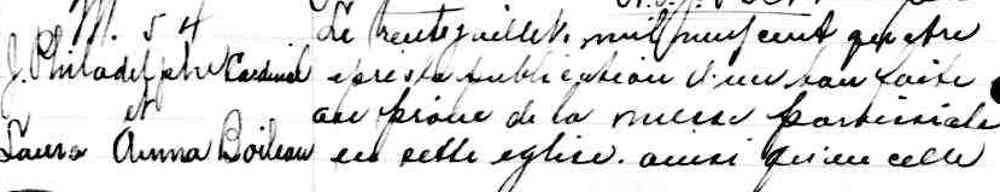 M. 54
J. Philadelphe Cardinal
et
Laura Anna Boileau
Le trente juillet, mil neuf cent quatre
après la publication d'un ban faite
au prône de la messe paroissiale
en cette église. ainsi qu'en celle